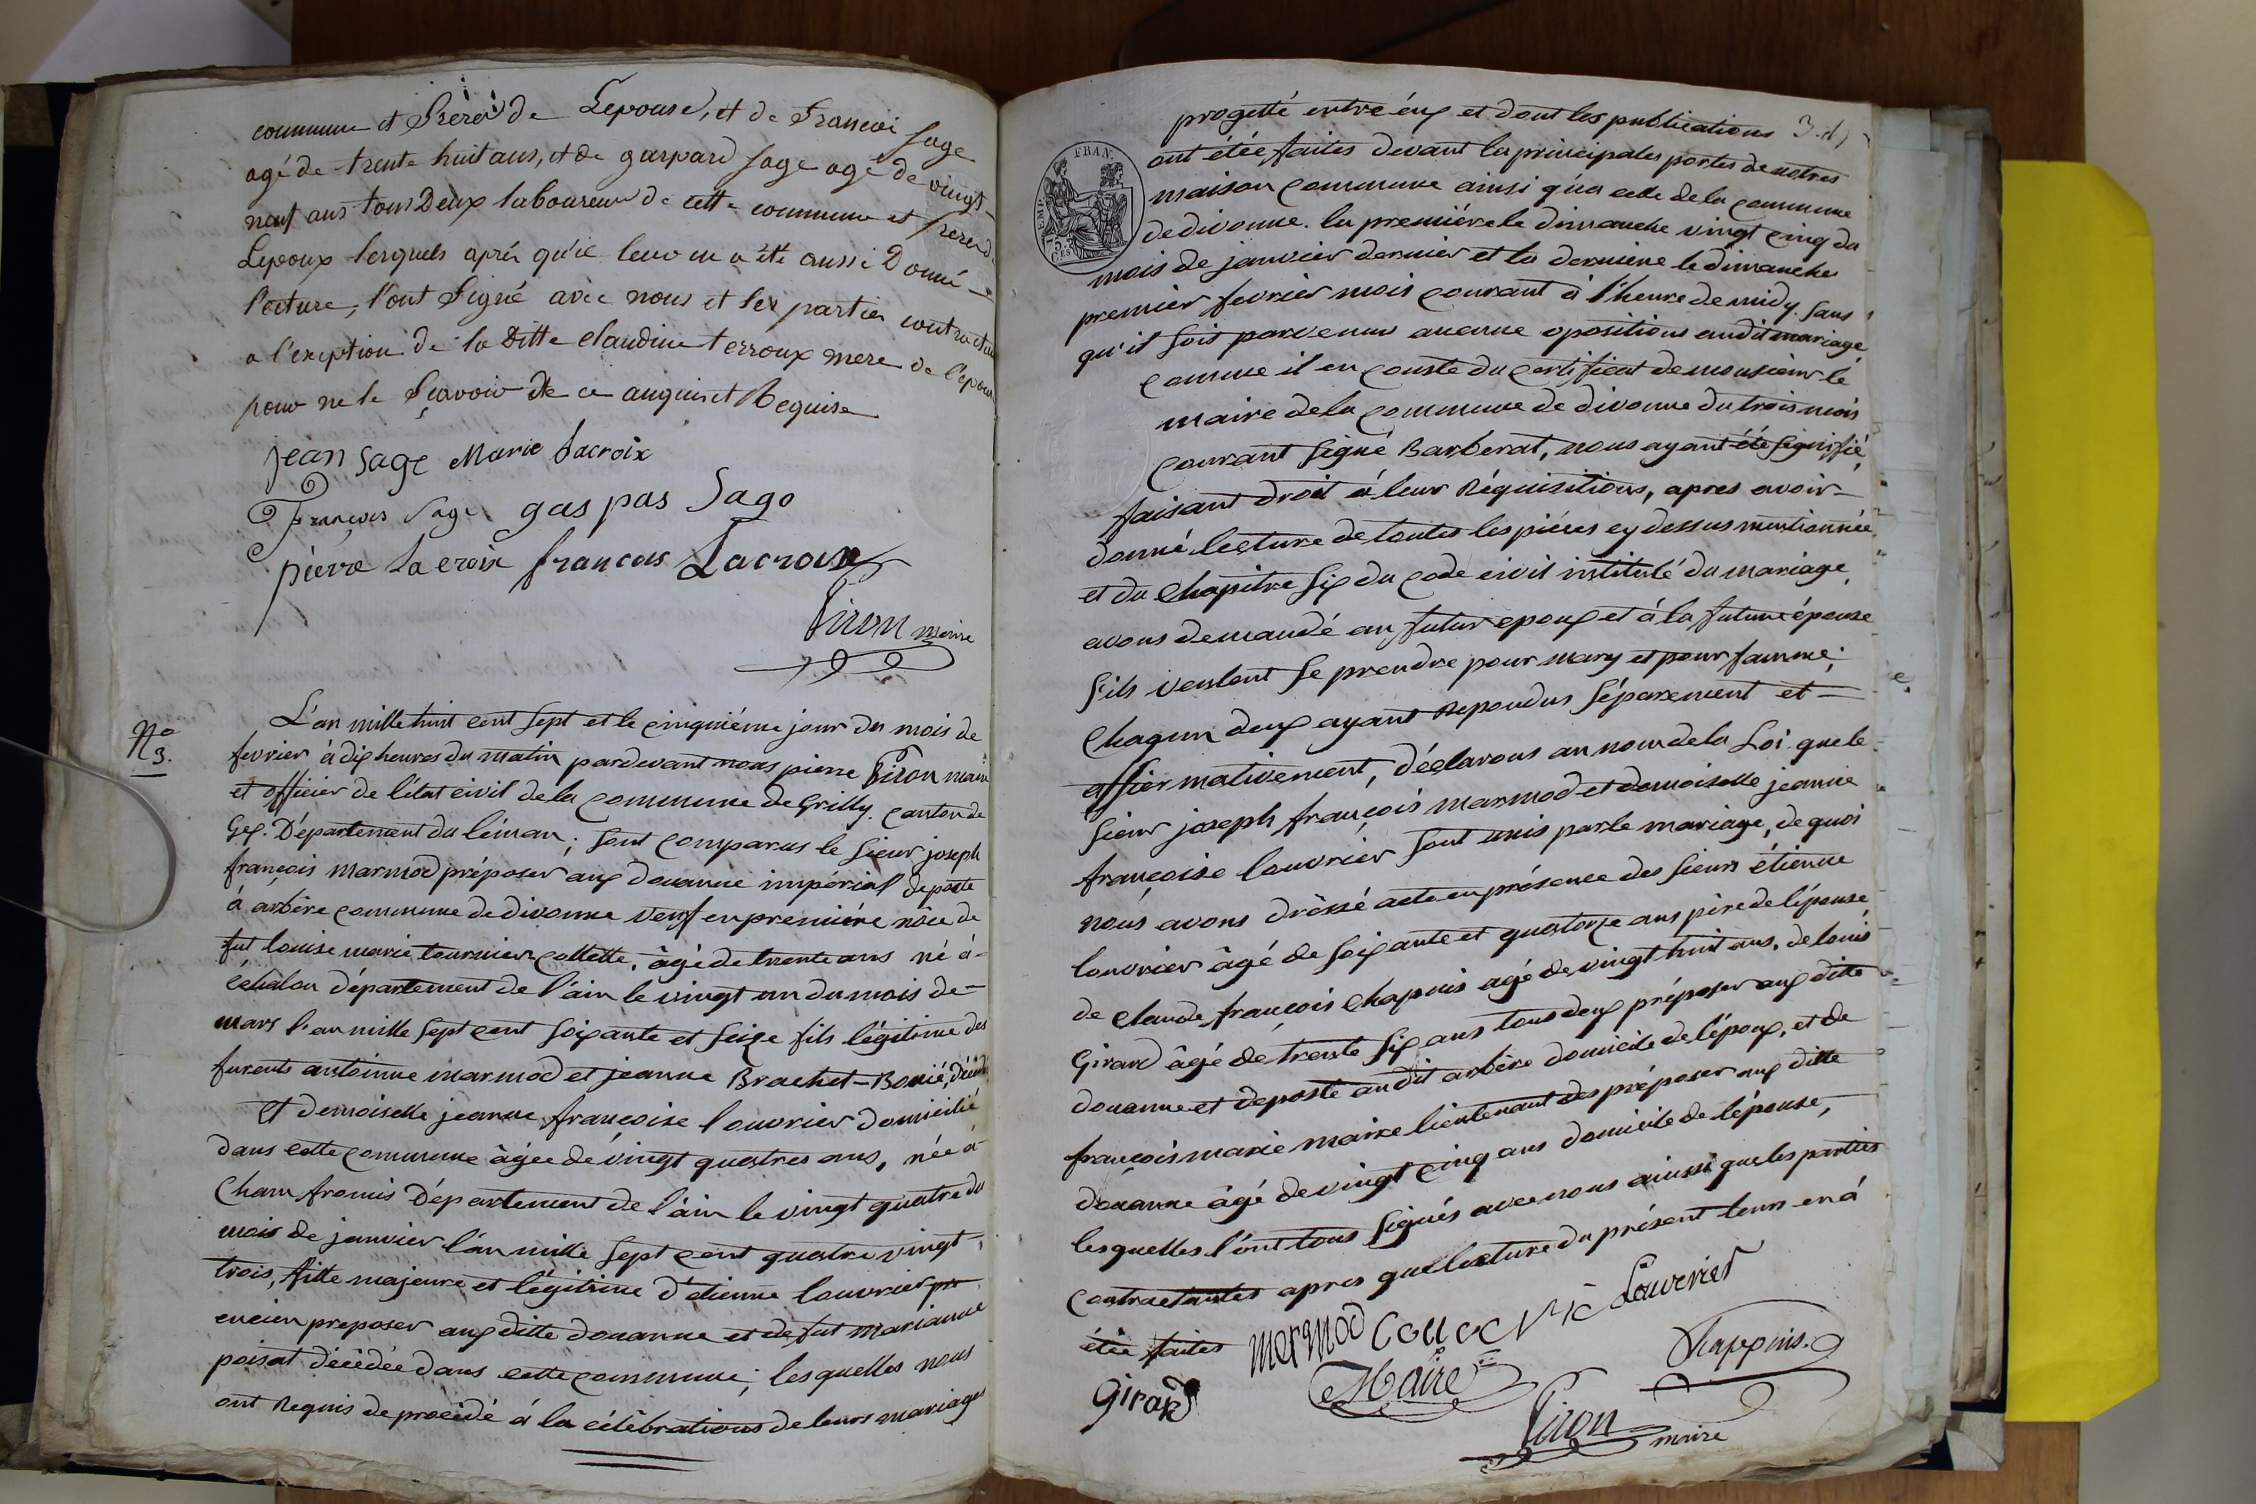 commune et frere de Lepouse, et de Francoi Sage
agé de trente huit ans, et de gaspard sage agé de vingt-
neuf ans tous Deux laboureur de cette commune et freres de
Lepoux lesquels aprés qu'ie leur en a été aussi Donné
lecture, l'ont signé avec nous et les parties contractan
a l'exeption de la ditte claudine terroux mere de l'epouse
pour ne le sçavoir de ce anquis et Requise
jean sage Marie Lacroix
françois Sage gas pas Sago
pierre Lacroix francois Lacroix
Piron maire
No
3.
L'an mille huit cent sept et le cinquiéme jour du mois de
fevrier à dix heures du matin pardevant nous pierre Piron maire
et officier de l'état civil de la commune de Grilly. canton de
Gex. Département du léman; sont comparus le sieur joseph
françois marmod préposer aux douanne impérial de poste
à arbére commune de divonne veuf en premiére nôce de
fut louise marie tournier collette, âgé de trente ans né à-
échalon département de l'ain le vingt un du mois de-
mars l'an mille sept cent soixante et seize fils légitime des
furents antoinne marmod et jeanne Brachet-Bonié, décédé
et demoiselle jeanne françoise louvrier domicilié
dans cette commune âgée de vingt quatres ans, née à
Cham fromis Département de l'ain le vingt quatre du
mois de janvier l'an mille sept cent quatre vingt-
trois, fille majeure et légitime d'étienne louvrier pr
encien preposer aux ditte douanne et de fut marianne
poisat décédée dans cette commune; lesquelles nous
ont Requis de procédé à la célébrations de leurs mariages
progetté entre éux et dont les publications
ont étée faites devant la principales portes de notres
maison commune ainsi qu'a celle de la commune
de divonne. la premiére le dimanche vingt cinq du
mois de janvier dernier et la derniere le dimanche
premier fevrier mois courant à l'heure de midy. sans
qu'il sois parvenus aucune opositions audit mariage
comme il en conste du certificat de monsieur le
maire de la commune de divonne du trois mois
courant signé Barberat, nous ayant été signifié,
faisant droit à leur Réquisitions, apres avoir-
donné lecture de toutes les piéces cy dessus mentionnée
et du chapitre six du code civil intitulé du mariage
avons demandé au futur epoux et à la future épouse
s'ils veulent se prendre pour mary et pour famme;
chaqun deux ayant Repondus séparement et-
affirmativement, déclarons au nom de la Loi que le
sieur joseph françois marmod et demoiselle jeanne
françoise louvrier sont unis par le mariage, de quoi
nous avons dréssé acte en présence des sieurs étienne
louvrier âgé de soixante et quatorze ans pére de l'épouse
de claude françois chapuis agé de vingt huit ans, de louis
Girard âgé de trente six ans tous deux préposer aux ditte
douanne et deposte audit arbére domicile de l'époux, et de
françois marie maire lieutenant des préposer aux ditte
douanne âgé de vingt cinq ans domicile de lépouse,
lesquelles l'ont tous signés avec nous ainssi que les parties
contractantes apres que lecture du présent leurs en á
étée faites
FRAN.
EMP.
75
CES
mermod Louverier
Maire Chappuis.
Girard
Piron maire